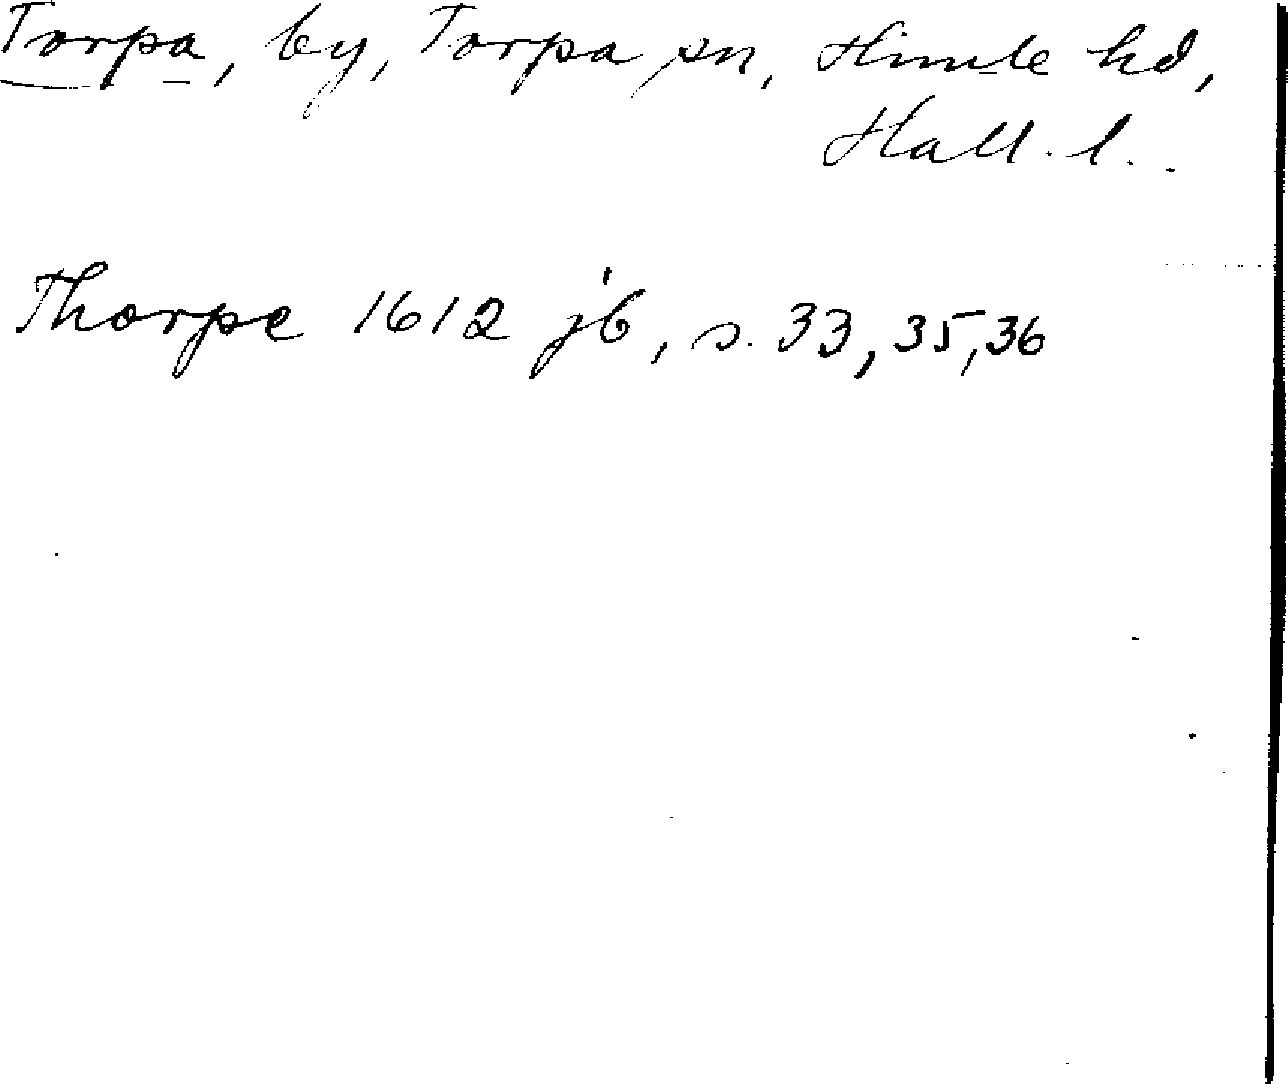 Torpa, by, Torpa sn, Himle hd,
Hall. l.
Thorpe 1612 jb, s. 33, 35, 36